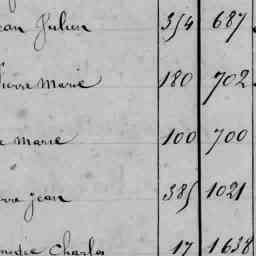 Jean Julien 354 687
Pierre Marie 180 702
Marie 100 700
Pierre Jean 385 1021
Amédée Charles 17 1638